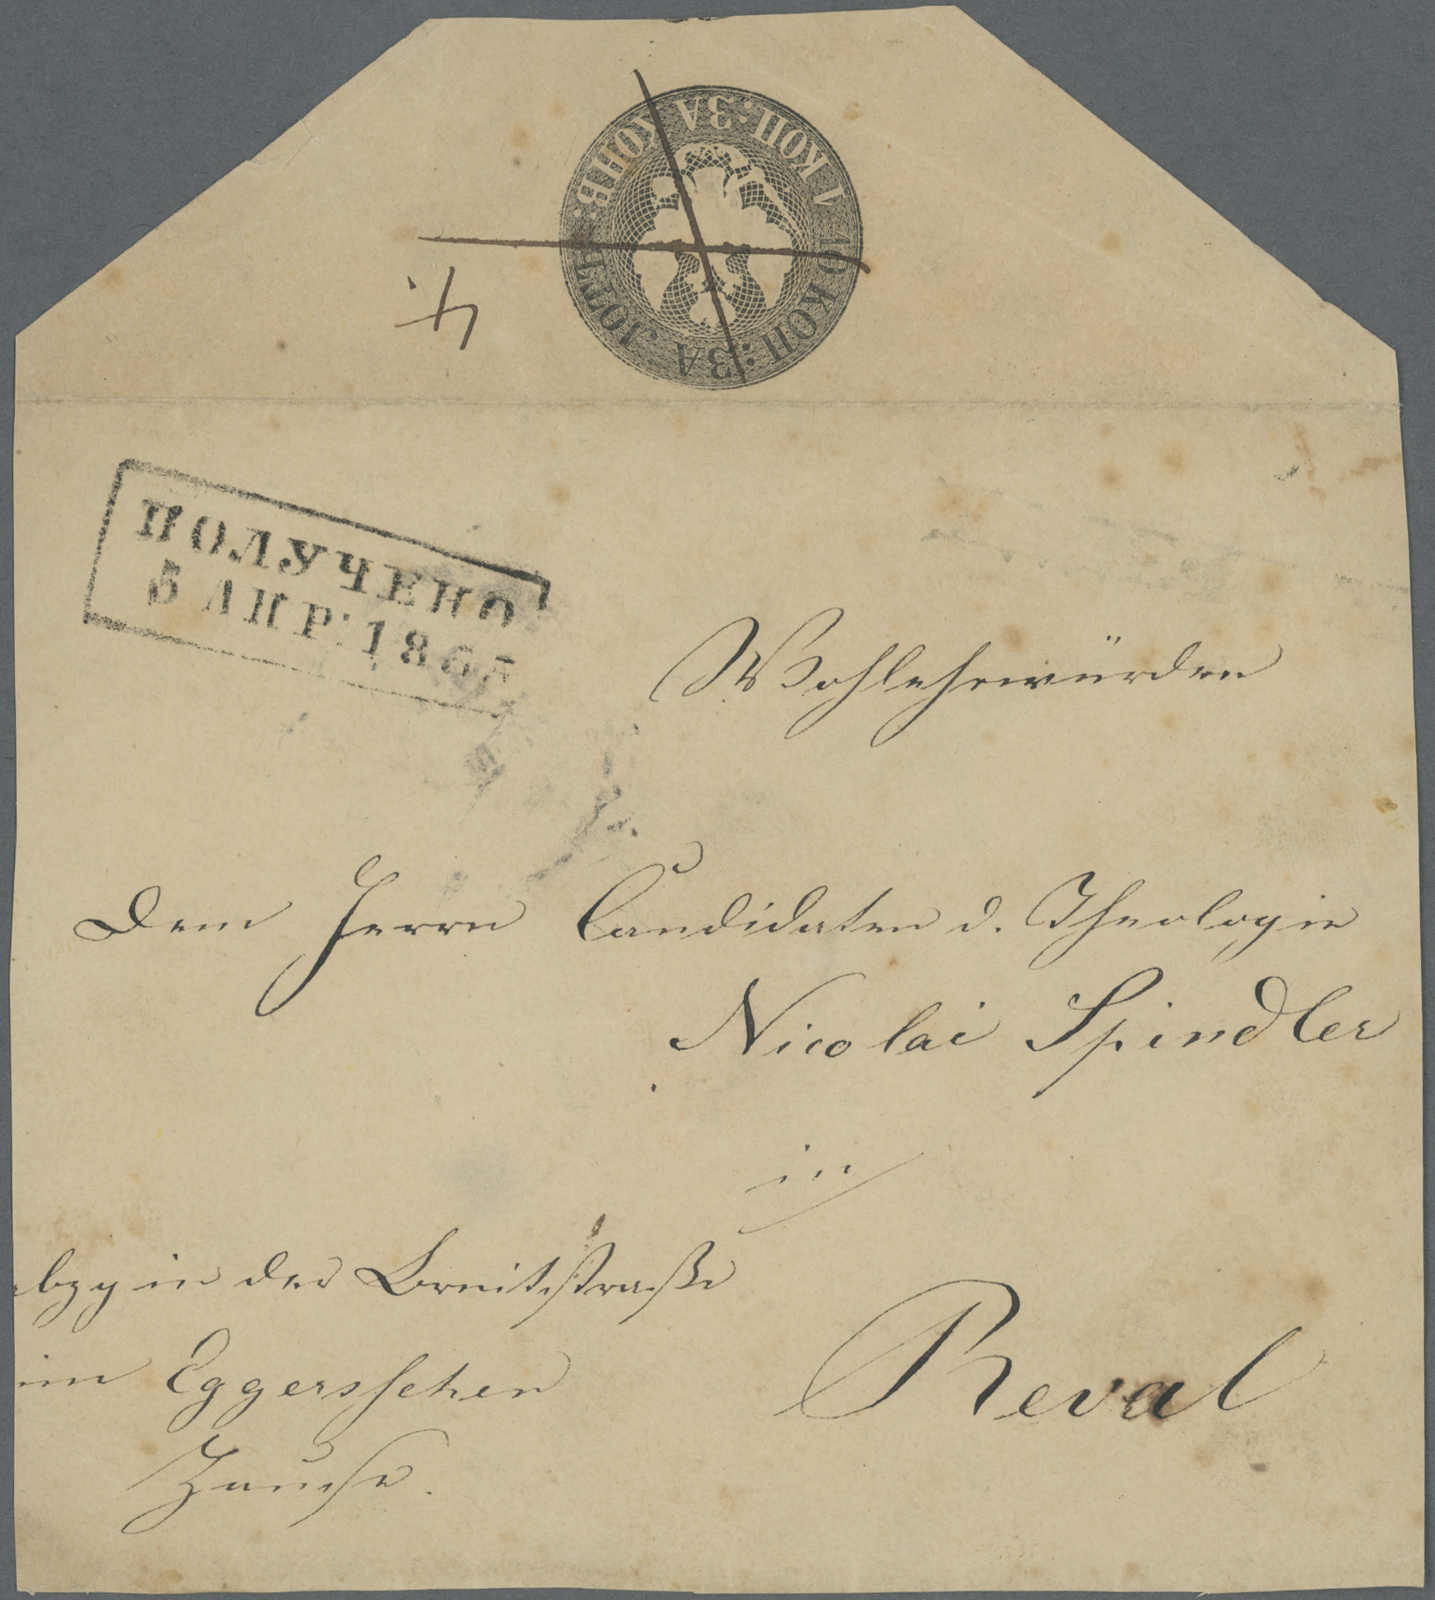 10 КОП: ЗА ЛОТЪ. 1 КОП: ЗА КОНВ:
4.
ПОЛУЧЕНО
5 АПР: 186
Wohlehrwürden
Dem Herrn Candidaten d. Theologie
Nicolai Spindler
in
in der Breitstraße
im Eggersschen
Hause.
Reval